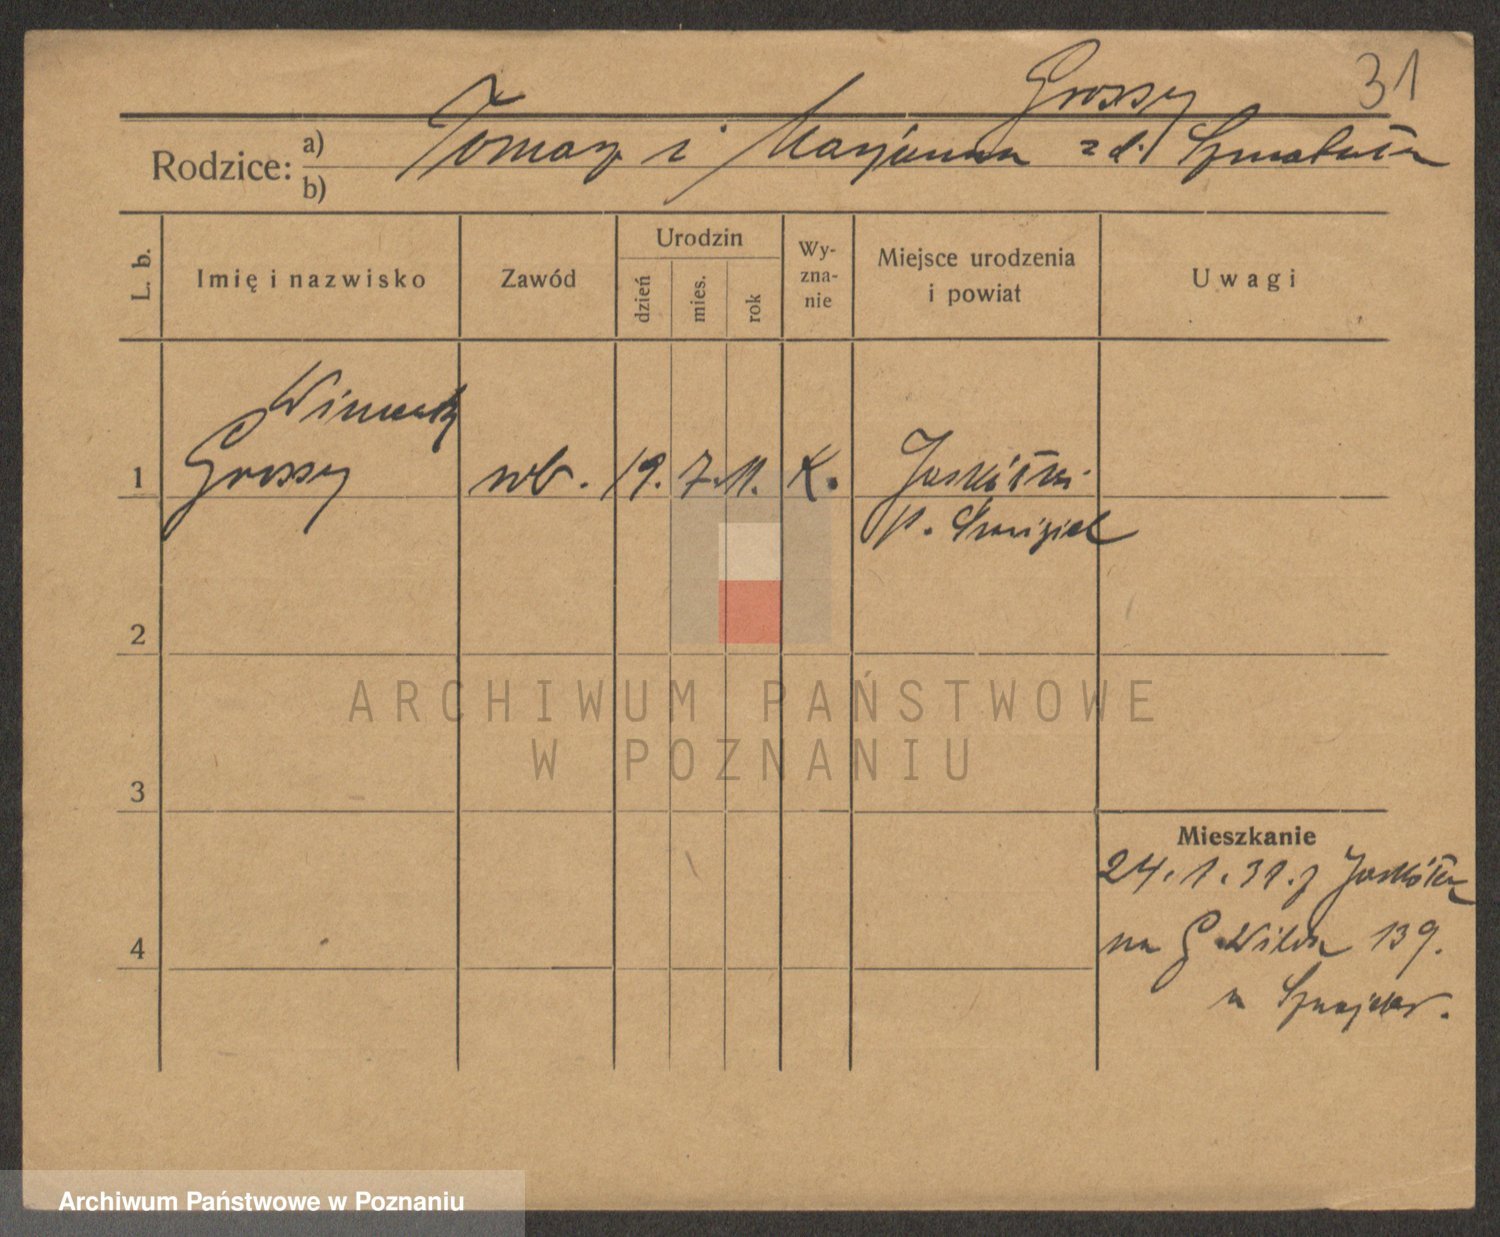 Grossy 31
Rodzice: a) Tomasz i Marjanna z d. Szmatuła
b)
L. b. Imię i nazwisko Zawód Urodzin dzień mies. rok Wy-zna-nie Miejsce urodzenia i powiat Uwagi
Wincenty
1 Grossy rob. 19. 7. 11. K. Jaskółki
p. Śmigiel
2
ARCHIWUM PAŃSTWOWE
W POZNANIU
3
Mieszkanie
24.1.31. z Jaskółki
4 na G. Wilda 139.
u
Archiwum Państwowe w Poznaniu